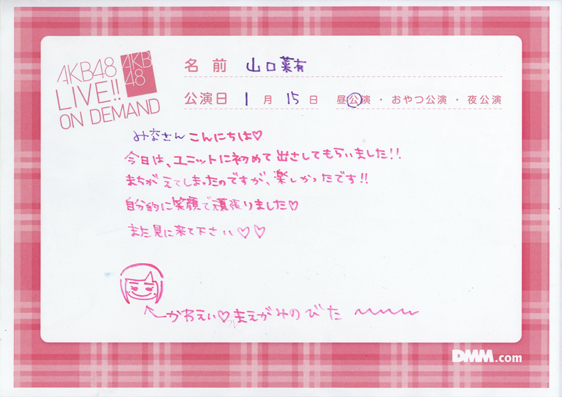 AKB48
LIVE!!
ON DEMAND
AKB
48
名前 山口菜有
公演日 1月15日 昼公演・おやつ公演・夜公演
みなさん こんにちは♡
今日は、ユニットに初めて出さしてもらいました!!
まちがえてしまったのですが、楽しかったです!!
自分的に笑顔で頑張りました♡
また見に来て下さい♡♡
まえがみのびた
DMM.com